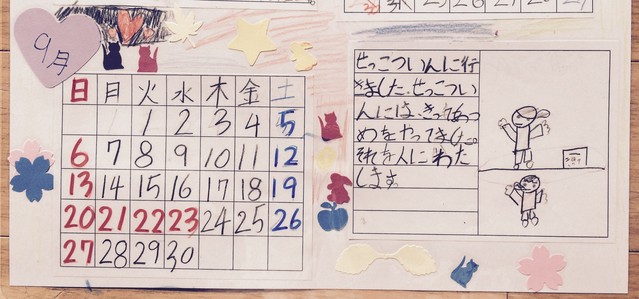 9月
日 月 火 水 木 金 土
1 2 3 4 5
6 7 8 9 10 11 12
13 14 15 16 17 18 19
20 21 22 23 24 25 26
27 28 29 30
せっこついんに行
きました。せっこつい
んには、きってあつ
めをやってました。
それを人にわた
します。